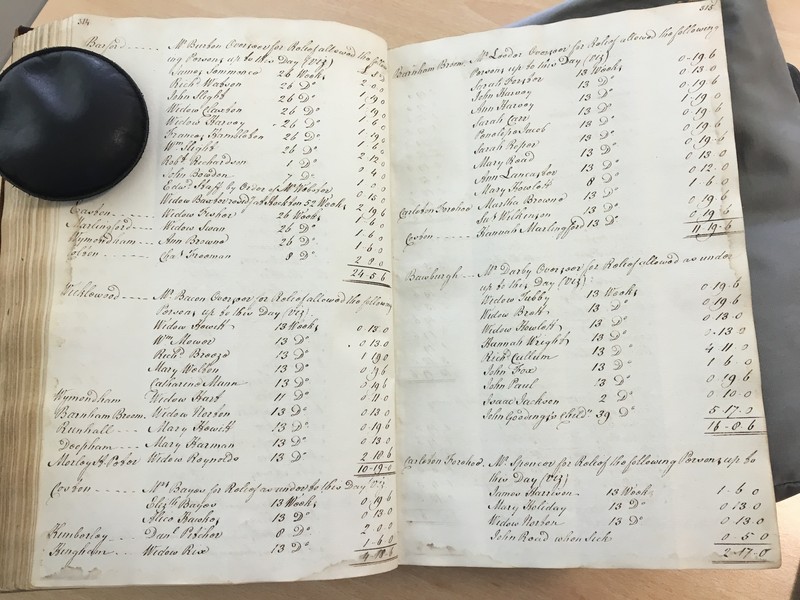 314
Barford ---- Mr. Burton Overseer for Relief allowed the follow
ing Persons up to this Day (Viz)
James Simmonds 26 Weeks
Richd Watson 26 Do 2 0 0
John Slight 26 Do 1 19 0
Widow Claxton 26 Do
Widow Harvey 26 Do
Frances 26 Do 1 19 0
Wm Slight 26 Do 1 6 0
Robt Richardson 1 Do
John Bowdon 7 Do 0 4 0
Edwd Staff by Order of Mr Webster
Widow Baxter 52 Weeks
Easton Widow Fisher 26 Weeks
Marlingford Widow Swan 26 Do
Wymondham Ann Browne 26 Do 1 6 0
Freeman 8 Do 2 0 0
24 5 6
Wicklewood ---- Mr Bacon Overseer for Relief allowed the following
Persons up to this Day (Viz)
Widow Howitt 13 Weeks 0 13 0
Wm Mower 13 Do 0 13 0
Richd Breeze 13 Do 1 19 0
Mary Wolton 13 Do 0 19 6
Catharine Mann 13 Do 0 19 6
Wymondham Widow Hart 11 Do 0 11 0
Barnham Broom Widow Norton 13 Do 0 13 0
Runhall ---- Mary Howitt 13 Do 0 19 6
Deopham --- Mary Harman 13 Do 0 13 0
Morley St Peter Widow Reynolds 13 Do
10 19 0
Coston ---- Mrs Bayes for Relief as under to this Day Viz
Elizth Bayes 13 Weeks 0 19 6
Alice 13 Do 0 13 0
Kimberley Danl Pitcher 8 Do 2 0 0
Hingham Widow Rix 13 Do 1 6 0
4 18 6
315
Barnham Broom. Mr Leeder Overseer for Relief allowed the following
Persons up to this Day (Viz)
Sarah Forster 13 Weeks 0 19 6
John Harvey 13 Do 0 13 0
Ann Harvey 13 Do 0 19 6
Sarah Carr 13 Do 1 19 0
Penelope Jacob 13 Do 0 19 6
Sarah Roper 13 Do 0 19 6
Mary Road 13 Do 0 19 6
Ann Lancaster 13 Do 0 13 0
Mary Howlett 8 Do 0 12 0
Carleton Forehoe Martha Browne 13 Do 1 6 0
Wilkenson 13 Do 0 19 6
Coston ---- Hannah Marlingford 13 Do 0 19 6
11 19 6
Bawburgh --- Mr Darby Overseer for Relief allowed as under
up to this Day (Viz)
Widow Tubby 13 Weeks 0 19 6
Widow Brett 13 Do 0 19 6
Widow Howlett 13 Do 0 13 0
Hannah Wright 13 Do 0 13 0
Richd Cullum 13 Do 4 11 0
John Fox 13 Do 1 6 0
John Paul 13 Do 0 19 6
Isaac Jackson 2 Do 0 10 0
John Gooding's Childn 39 Do 5 17 0
16 8 6
Carleton Forehoe. Mr Spencer for Relief of the following Persons up to
this Day (Viz)
James Harrison 13 Weeks 1 6 0
Mary Holiday 13 Do 0 13 0
Widow Norton 13 Do 0 13 0
John Road when Sick 0 5 0
2 17 0